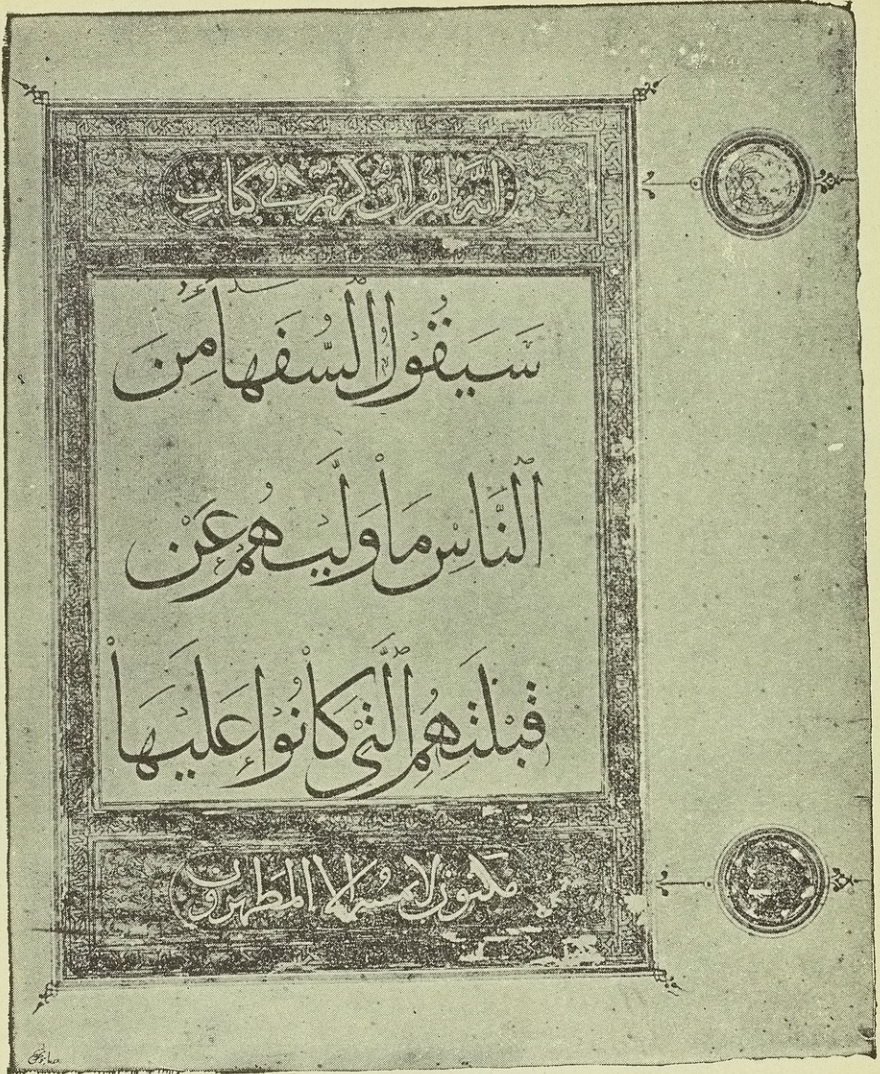 انه لقرآن كريم في كتاب
سَيَقُولُ ٱلسُّفَهَاءُ مِنَ
ٱلنَّاسِ مَا وَلَّيٰهُمْ عَنْ
قِبْلَتِهِمُ ٱلَّتِي كَانُوا عَلَيْهَا
مكنون لا يمسه الا المطهرون